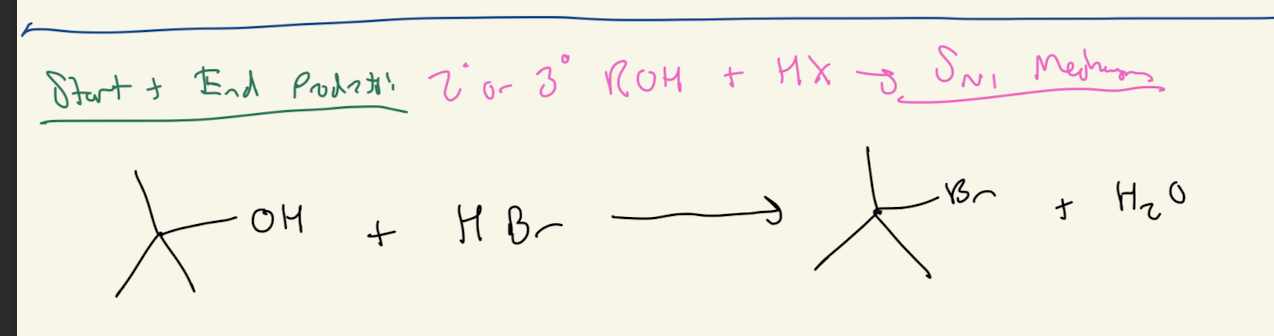 Start + End Products: 2° or 3° ROH + HX → SN1 Mechanism
OH + HBr → Br + H2O